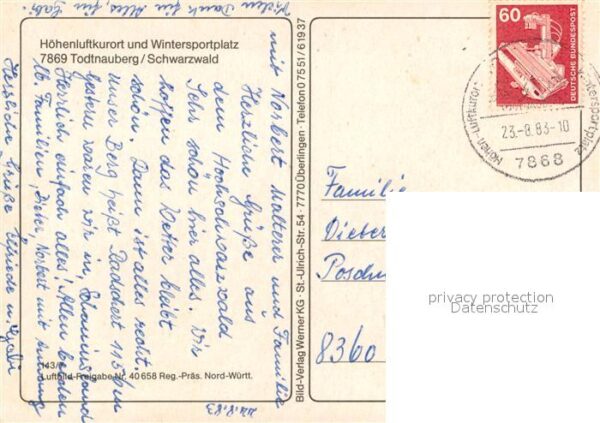 Vielen Dank für Alles, für Gabi.
Höhenluftkurort und Wintersportplatz
7869 Todtnauberg / Schwarzwald
Herzliche Grüße aus
dem Hochschwarzwald
Sehr schön hier alles. Wir
hoffen das Wetter bleibt
schön. Dann ist alles recht.
unser Berg heißt Radschert 1151m
gestern waren wir in
Herrlich einfach alles! Allen beiden
lb. Familien, Dieter, Norbert mit Anhang
Herzliche Grüße Elfriede u. Gabi
mit Norbert Walterer und Familie
143/7
Luftbild-Freigabe Nr. 40 658 Reg.-Präs. Nord-Württ.
22.8.83
Bild-Verlag Werner KG · St.-Ulrich-Str. 54 · 7770 Überlingen · Telefon 0 75 51 / 6 19 37
60
DEUTSCHE BUNDESPOST
Höhen-Luftkurort
23.-8.83-10
7868
Familie
Dieter
8360
privacy protection
Datenschutz